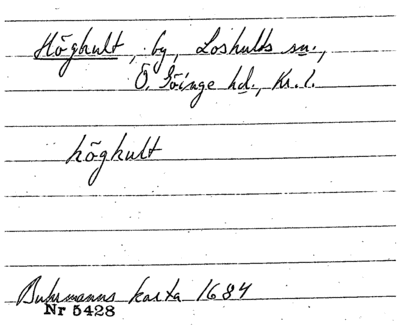 Höghult, by, Loshults sn.,
Ö. Göinge hd., Kr. l.
höghult
Buhrmanns karta 1684
Nr 5428